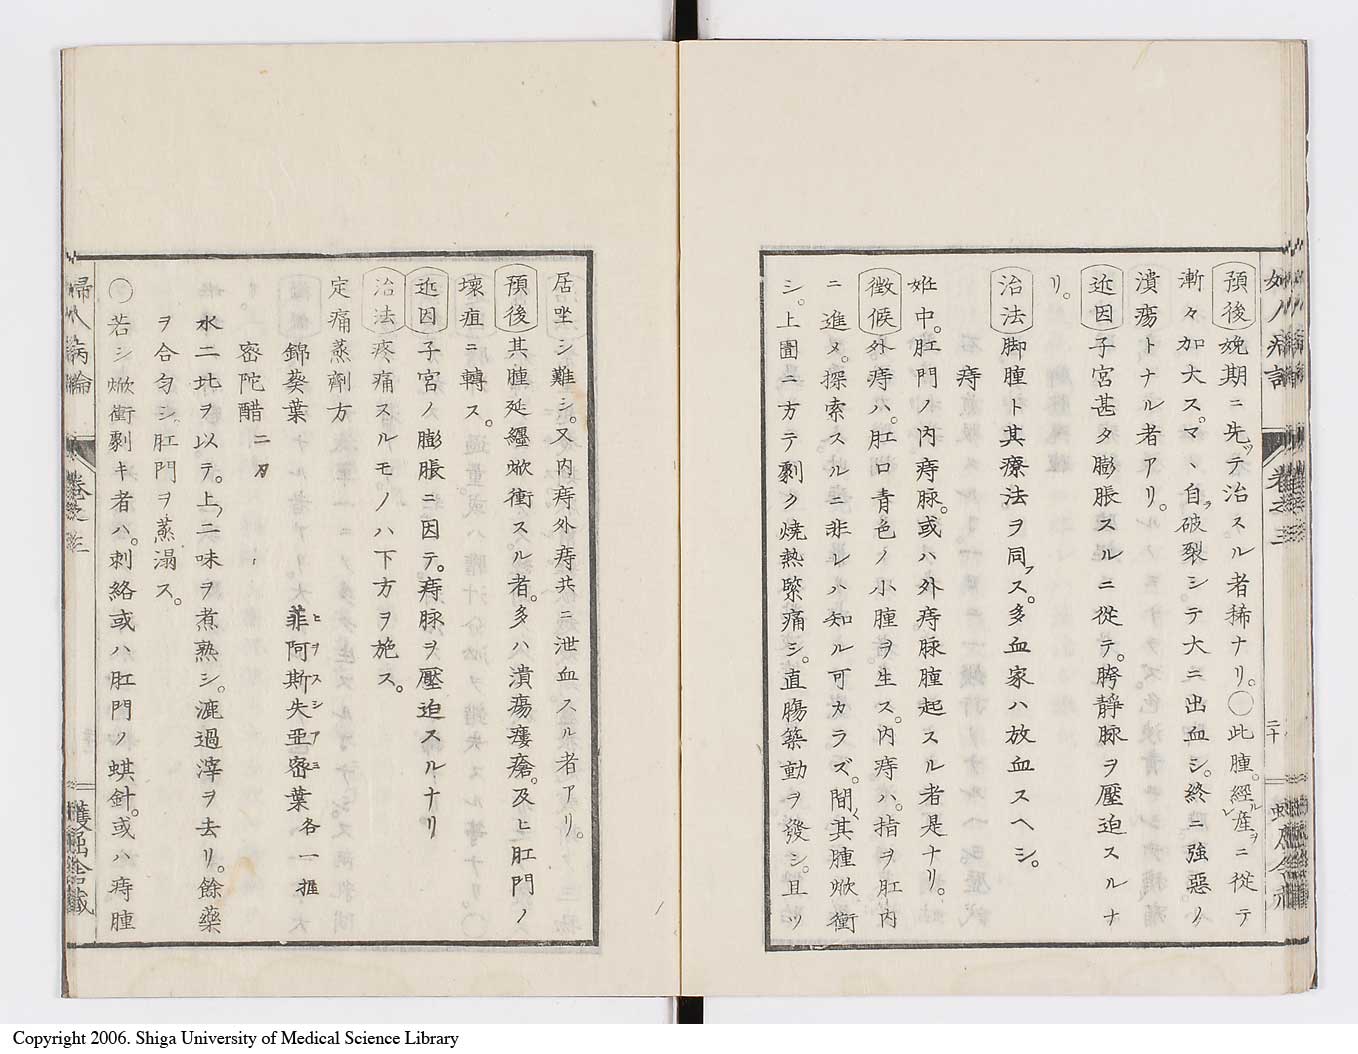 預後娩期ニ先ッテ治スル者稀ナリ。〇此腫。經産ヲニ從テ
漸々加大ス。マヽ、自ラ破裂シテ大ニ出血シ。終ニ強悪ノ
潰瘍トナル者アリ。
近因子宮甚タ膨脹スルニ從テ。胯靜脉ヲ壓迫スルナ
リ。
治法脚腫ト其療法ヲ同フス。多血家ハ放血スヘシ。
痔
姙中。肛門ノ内痔脉。或ハ外痔脉腫起スル者是ナリ。
徴候外痔ハ。肛口青色ノ小腫ヲ生ス。内痔ハ。指ヲ肛内
ニ進メ。探索スルニ非レハ知ル可カラズ。間〻其腫焮衝
シ。上圊ニ方テ劇ク燒熱緊痛シ。直膓築動ヲ發シ。且ツ
居坐シ難シ。又内痔外痔共ニ泄血スル者アリ。
預後其腫延纒焮衝スル者。多ハ潰瘍瘻瘡。及ヒ肛門ノ
壞疽ニ轉ス。
近因子宮ノ膨脹ニ因テ。痔脉ヲ壓迫スルナリ
治法疼痛スルモノハ下方ヲ施ス。
定痛蒸劑方
錦葵葉 菲阿斯失亞密葉各一握
ヒヲスシアミ
密陀醋二刄
水二片ヲ以テ。上二味ヲ煮熟シ。漉過滓ヲ去リ。餘藥
ヲ合匀シ。肛門ヲ蒸溻ス。
〇若シ焮衝劇キ者ハ。刺絡或ハ肛門ノ蜞針。或ハ痔腫
婦人病論 卷之二